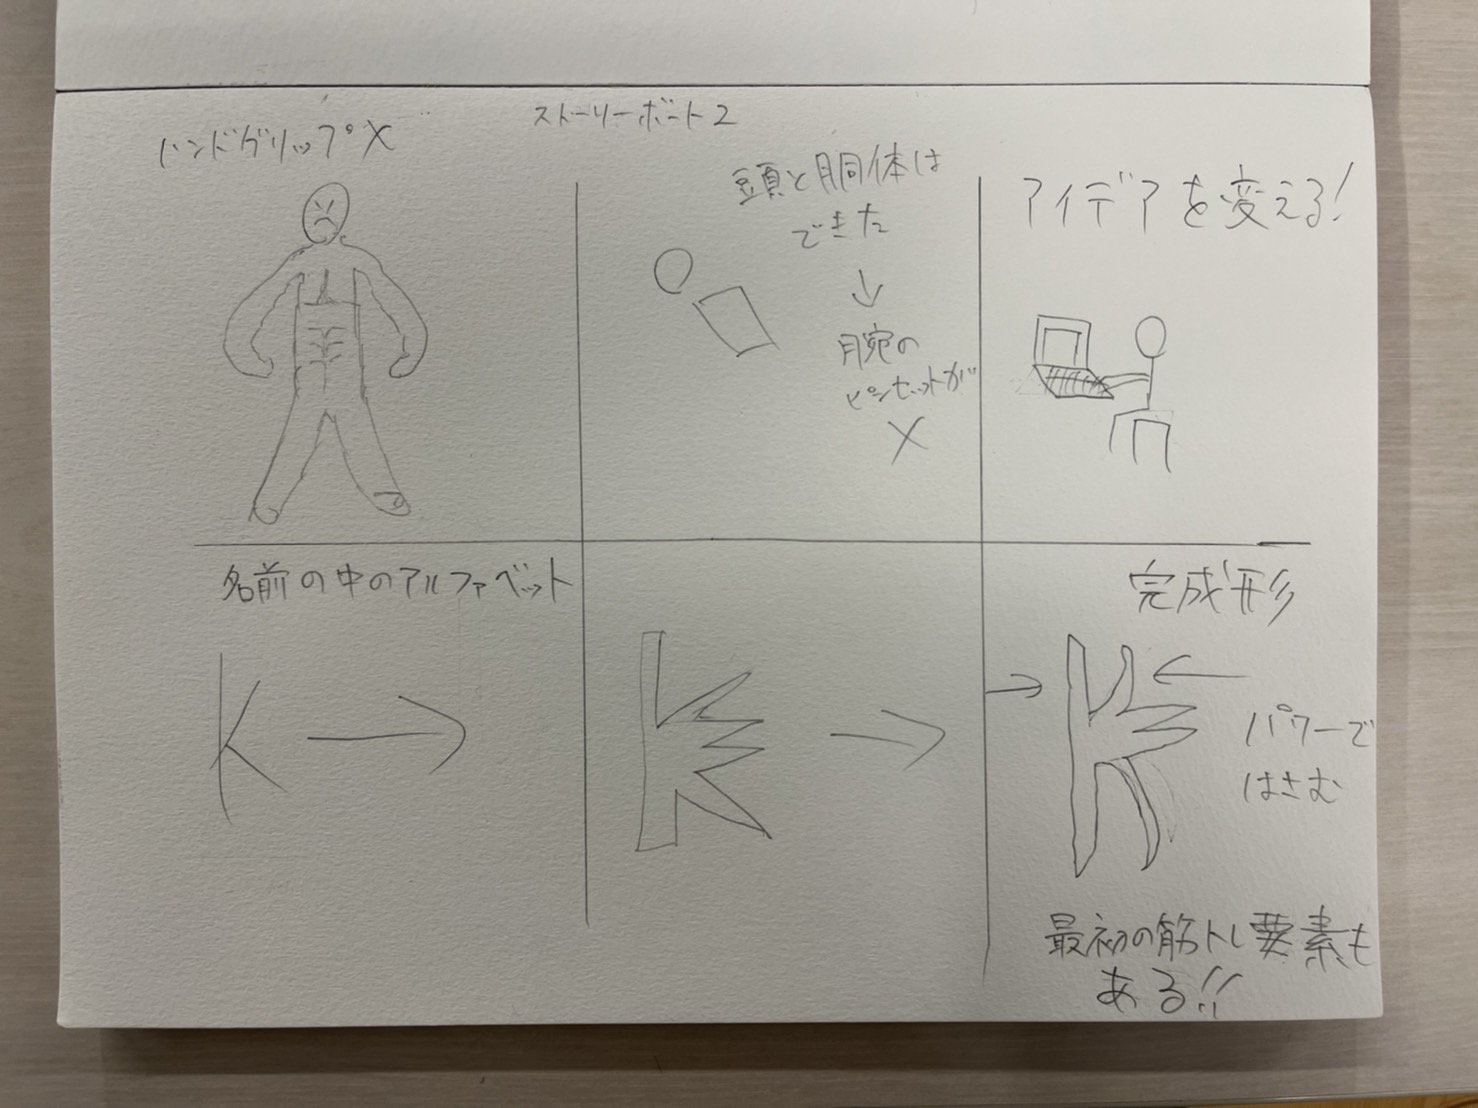 ストーリーボード2
ハンドグリップX
頭と胴体は
できた
↓
腕の
ピンセットが
X
アイデアを変える!
名前の中のアルファベット
K
完成形
パワーで
はさむ
最初の筋トレ要素も
ある!!